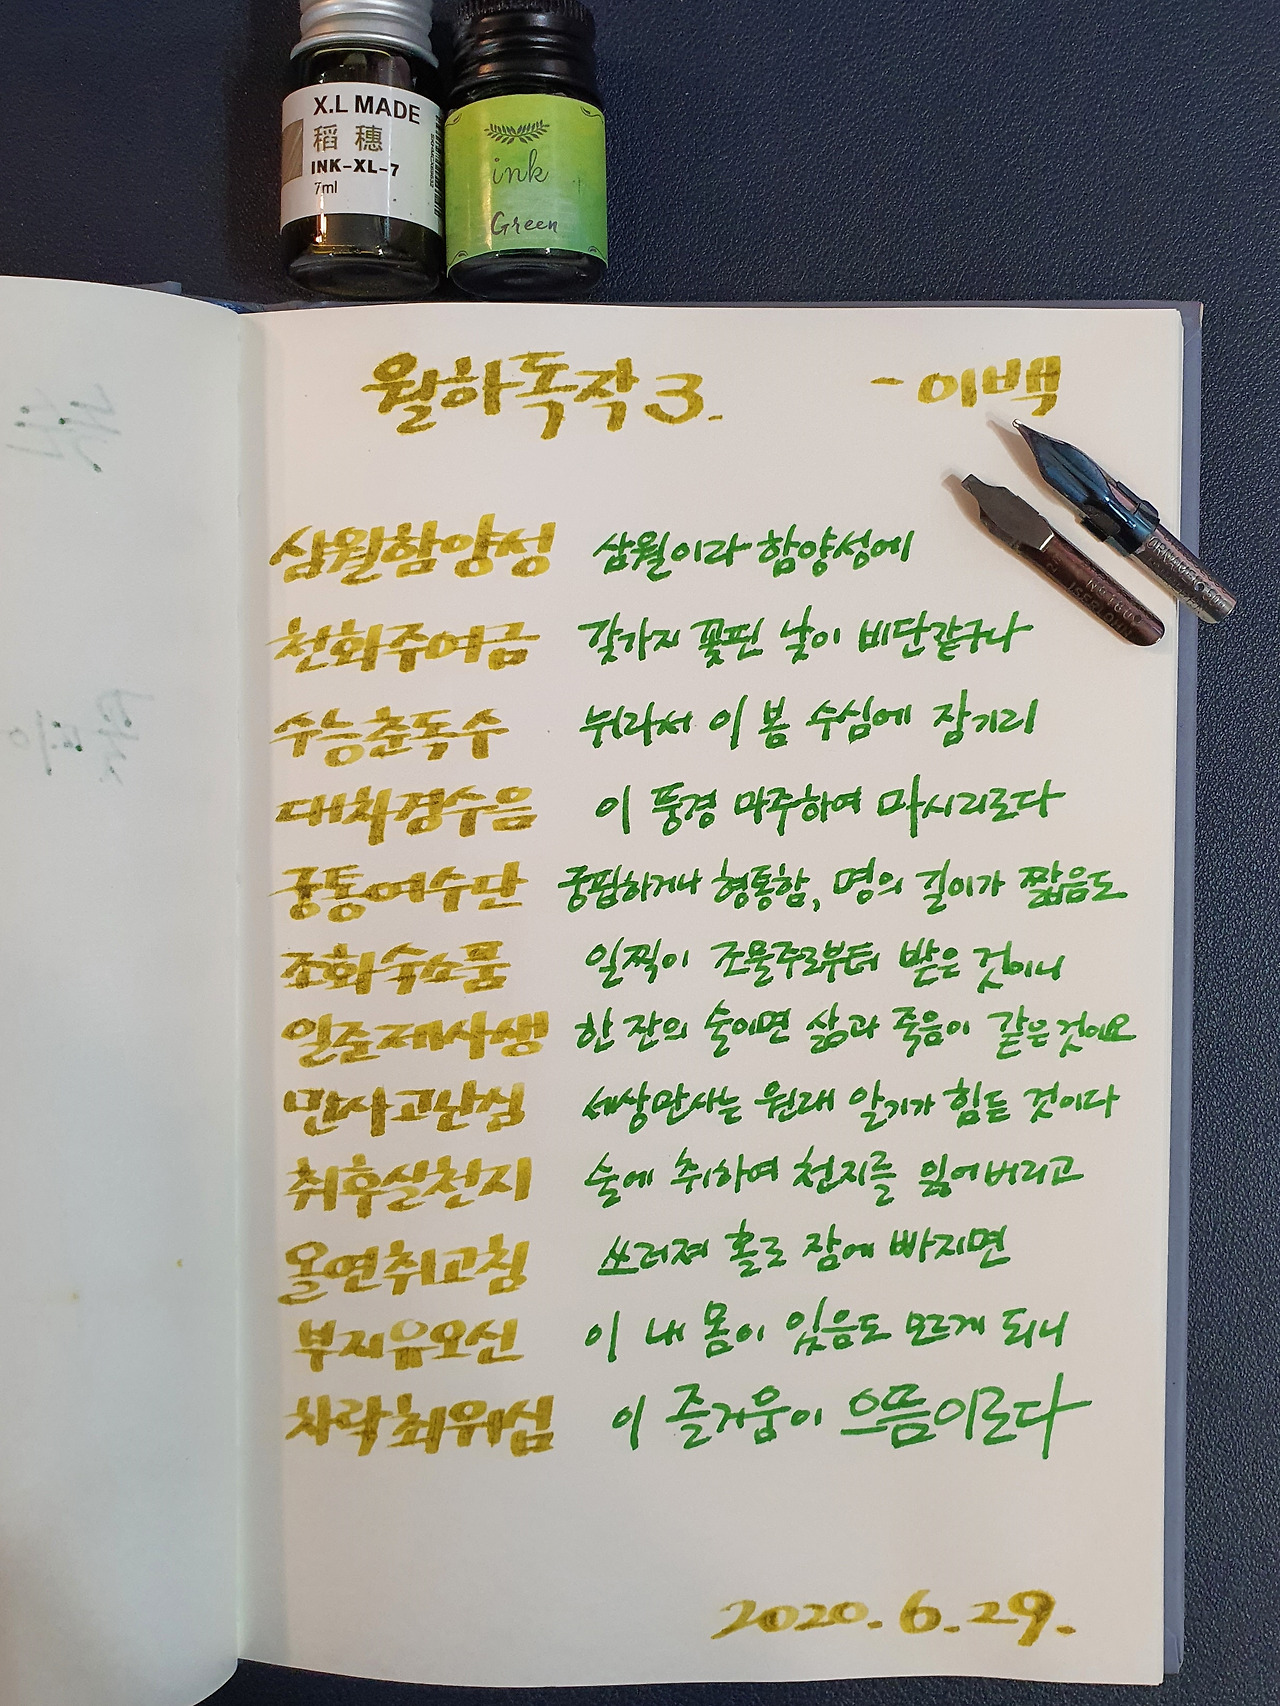 X.L MADE
稻穗
INK-XL-7
7ml
ink
Green
월하독작 3. - 이백
삼월함양성 삼월이라 함양성에
천화주여금 갖가지 꽃핀 낮이 비단같구나
수능춘독수 뉘라서 이 봄 수심에 잠기리
대차경수음 이 풍경 마주하여 마시리로다
궁통여수단 궁핍하거나 형통함, 명의 길이가 짧음도
조화숙소품 일찍이 조물주로부터 받은 것이니
일준제사생 한 잔의 술이면 삶과 죽음이 같은것이요
만사고난심 세상만사는 원래 알기가 힘든 것이다
취후실천지 술에 취하여 천지를 잃어버리고
올연취고침 쓰러져 홀로 잠에 빠지면
부지유오신 이 내 몸이 있음도 모르게 되니
차락최위심 이 즐거움이 으뜸이로다
2020. 6. 29.